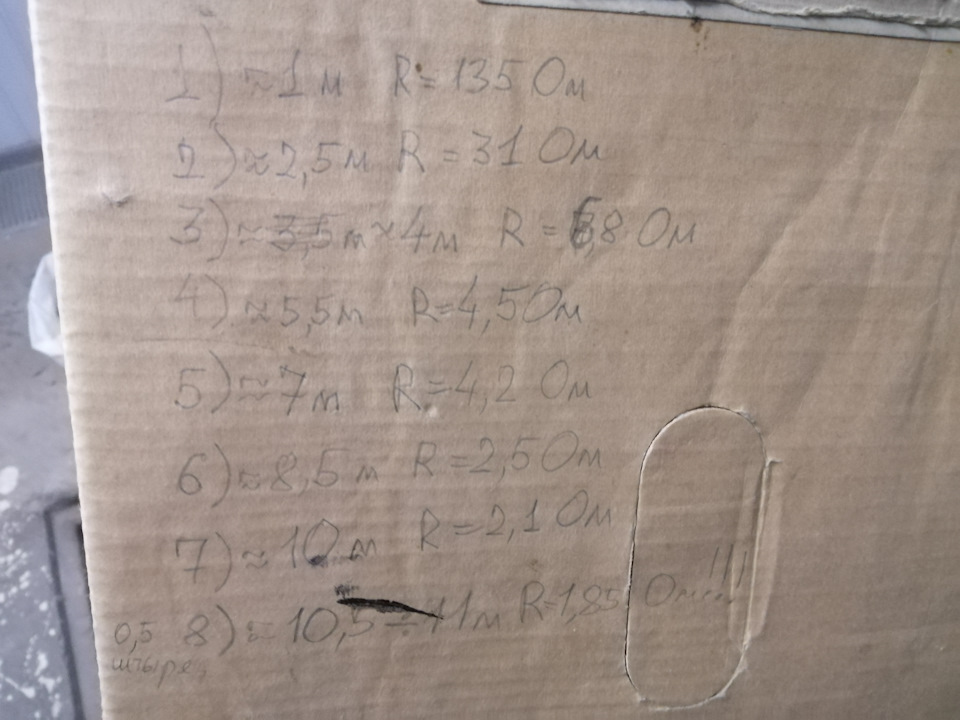 1) ≈1 м R = 135 Ом
2) ≈2,5 м R = 31 Ом
3) ≈ 3,5 м ≈ 4 м R = 6,8 Ом
4) ≈ 5,5 м R = 4,5 Ом
5) ≈ 7 м R = 4,2 Ом
6) ≈ 8,5 м R = 2,5 Ом
7) ≈ 10 м R = 2,1 Ом
8) ≈ 10,5 ÷ 11 м R = 1,85 Ом... !!!
0,5
штыре